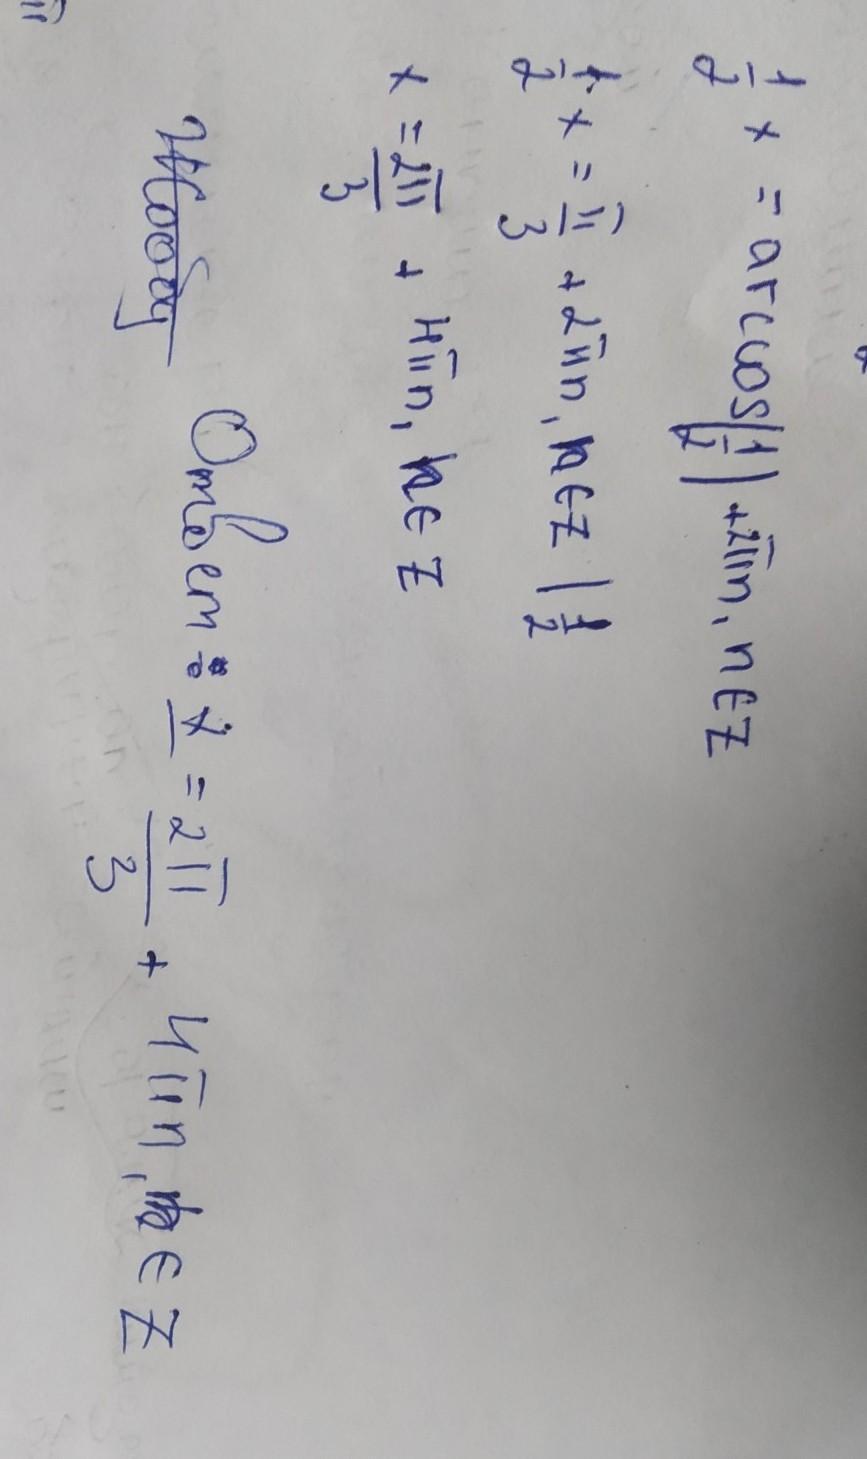 1/2 x = arccos(1/2) + 2πn, n ∈ Z
1/2 x = π/3 + 2πn, n ∈ Z | 1/2
x = 2π/3 + 4πn, n ∈ Z
Ответ: x = 2π/3 + 4πn, n ∈ Z